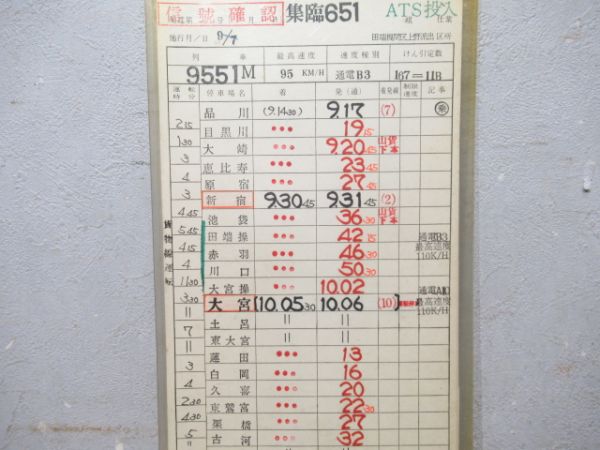 信號確認 集臨651 ATS投入
施行月/日 9/7 田端機関区上野派出区所
列車 最高速度 速度種別 けん引定数
9551M 95 KM/H 通電B3 167=11B
運転時分 停車場名 着 発(通) 着発線 制限速度 記事
品川 (9.14 30) 9.17 (7) 乗
2 15
目黒川 ••• 19 15
1 30
大崎 ••• 9.20 45 山貨下本
3
恵比寿 ••• 23 45
4
原宿 ••• 27 45
3
新宿 9.30 45 9.31 45 (2)
4 45
池袋 ••• 36 30 山貨下本
5 45
田端操 ••• 42 15 通電B3
4 15 最高速度
赤羽 ••• 46 30 110K/H
4
川口 ••• 50 30
11 30
大宮操 10.02 通電A10
3 30 最高速度
大宮 [10.05 30 10.06 (10)] 110K/H
〃
土呂 〃 〃
7
東大宮 〃 〃
〃
蓮田 ••• 13
3
白岡 ••• 16
4
久喜 ••• 20
2 30
東鷲宮 ••• 22 30
4 30
栗橋 ••• 27
5
古河 ••• 32
〃
貨物線運転